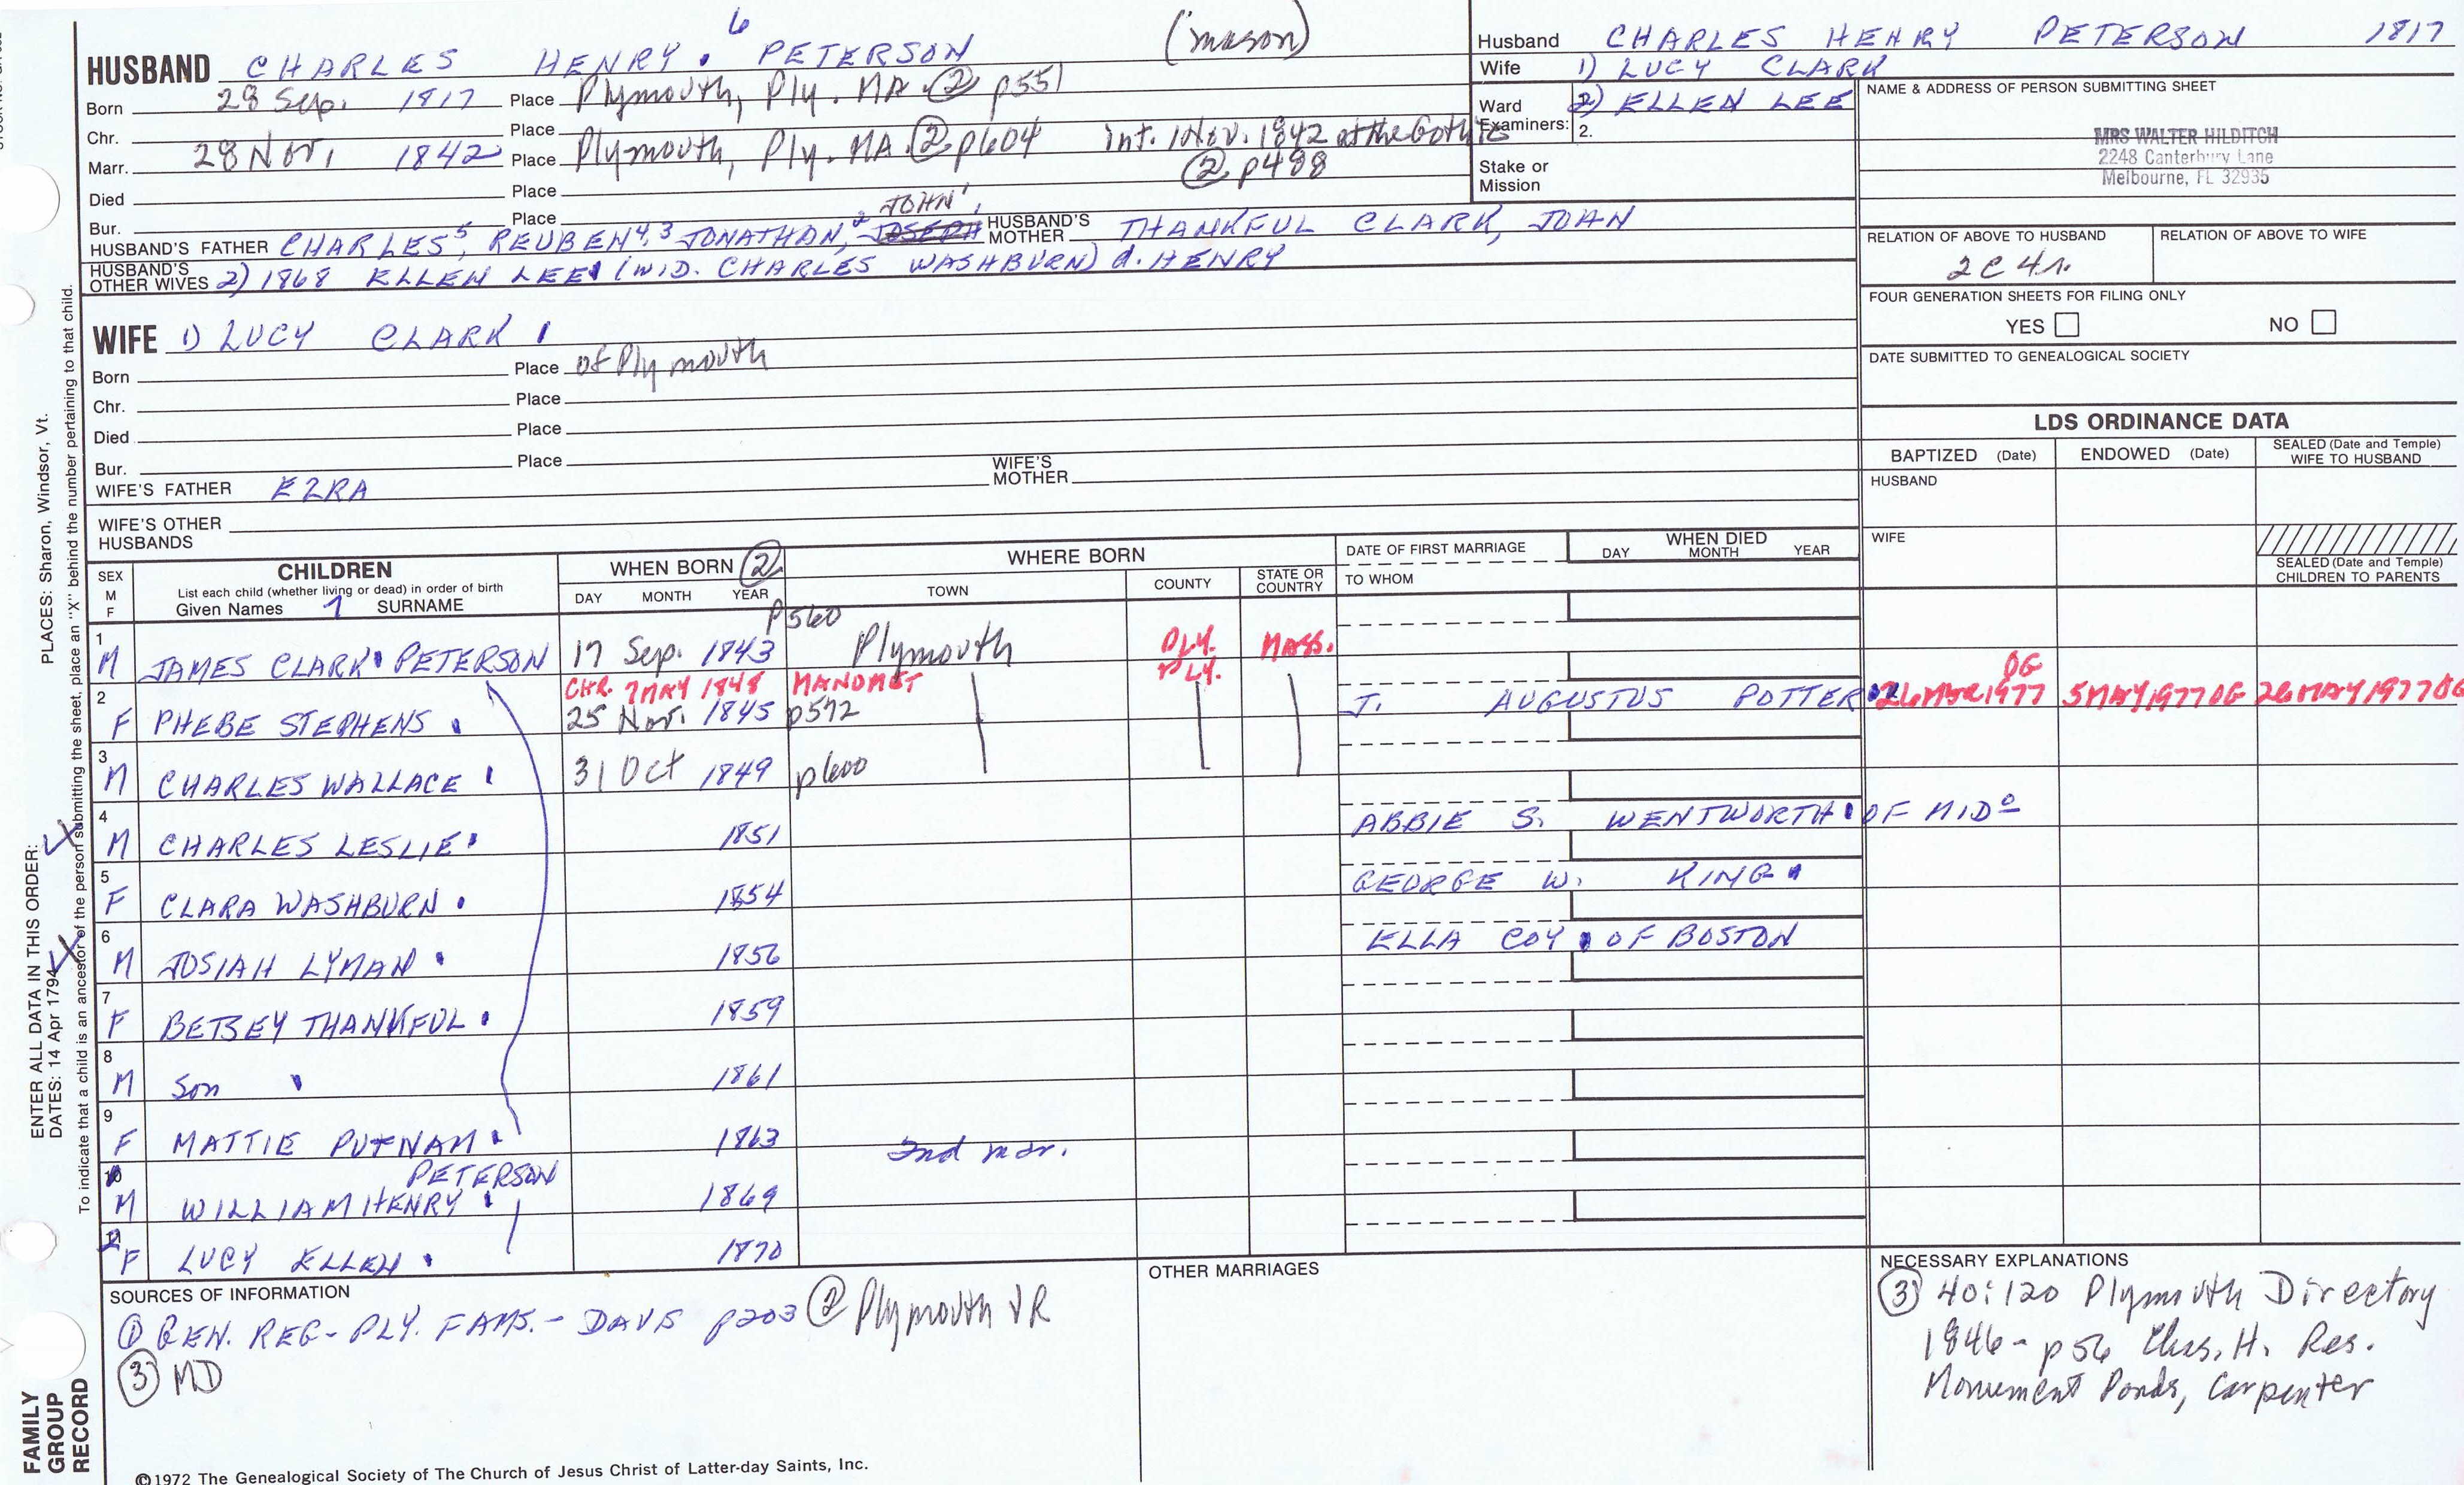 6
(mason)
HUSBAND CHARLES HENRY PETERSON
Born 28 Sep. 1817 Place Plymouth, Ply. MA ② p551
Chr. Place
Marr. 28 Nov. 1842 Place Plymouth, Ply. MA ② p604 int. 1 Nov. 1842 at the
② p488
Died Place
Bur. Place
JOHN¹
HUSBAND'S FATHER CHARLES⁵, REUBEN⁴, ³JONATHAN, ²JOSEPH HUSBAND'S MOTHER THANKFUL CLARK, JOHN
HUSBAND'S OTHER WIVES 2) 1868 ELLEN LEE (WID. CHARLES WASHBURN) d. HENRY
Husband CHARLES HENRY PETERSON 1817
Wife 1) LUCY CLARK
Ward 2) ELLEN LEE
Examiners: 2.
Stake or
Mission
NAME & ADDRESS OF PERSON SUBMITTING SHEET
MRS WALTER HILDITCH
2248 Canterbury Lane
Melbourne, FL 32935
RELATION OF ABOVE TO HUSBAND RELATION OF ABOVE TO WIFE
2C 4r.
FOUR GENERATION SHEETS FOR FILING ONLY
YES NO
DATE SUBMITTED TO GENEALOGICAL SOCIETY
WIFE 1) LUCY CLARK
Born Place of Plymouth
Chr. Place
Died Place
Bur. Place
WIFE'S FATHER EZRA WIFE'S MOTHER
WIFE'S OTHER
HUSBANDS
LDS ORDINANCE DATA
BAPTIZED (Date) ENDOWED (Date) SEALED (Date and Temple) WIFE TO HUSBAND
HUSBAND
WIFE
SEALED (Date and Temple)
CHILDREN TO PARENTS
SEX
M
F
CHILDREN
List each child (whether living or dead) in order of birth
Given Names 1 SURNAME
WHEN BORN ②
DAY MONTH YEAR
WHERE BORN
TOWN COUNTY STATE OR COUNTRY
DATE OF FIRST MARRIAGE
TO WHOM
WHEN DIED
DAY MONTH YEAR
p560
1 M JAMES CLARK PETERSON 17 Sep. 1843 Plymouth PLY. MASS.
CHR. 7 MAY 1848 MANOMET PLY.
2 F PHEBE STEPHENS 25 Nov. 1845 p572 J. AUGUSTUS POTTER 1977 OG 5 MAY 1977 OG 26 MAY 1977 OG
3 M CHARLES WALLACE 31 Oct 1849 p600
4 M CHARLES LESLIE 1851 ABBIE S. WENTWORTH OF MIDº
5 F CLARA WASHBURN 1854 GEORGE W. KING
6 M JOSIAH LYMAN 1856 ELLA COY OF BOSTON
7 F BETSEY THANKFUL 1859
8 M Son 1861
9 F MATTIE PUTNAM 1863 2nd mar.
PETERSON
M WILLIAM HENRY 1869
F LUCY ELLEN 1870
SOURCES OF INFORMATION
① GEN. REG - PLY. FAMS. - DAVIS p203 ② Plymouth VR
③ MD
OTHER MARRIAGES
NECESSARY EXPLANATIONS
③ 40:120 Plymouth Directory
1846 - p56 Chas. H. Res.
Monument Ponds, Carpenter
©1972 The Genealogical Society of The Church of Jesus Christ of Latter-day Saints, Inc.
FAMILY
GROUP
RECORD
ENTER ALL DATA IN THIS ORDER:
DATES: 14 Apr 1794
PLACES: Sharon, Windsor, Vt.
To indicate that a child is an ancestor of the person submitting the sheet, place an "X" behind the number pertaining to that child.